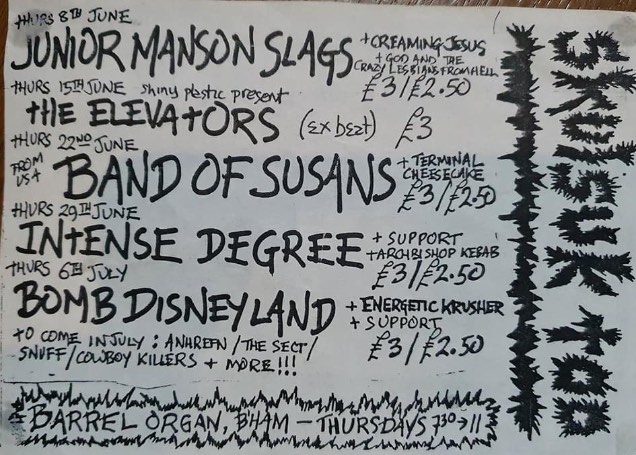 THURS 8TH JUNE
JUNIOR MANSON SLAGS
+ CREAMING JESUS
+ GOD AND THE
CRAZY LESBIANS FROM HELL
£3/£2.50
THURS 15TH JUNE shiny plastic present
THE ELEVATORS (Ex bzzt) £3
THURS 22ND JUNE
FROM
USA
BAND OF SUSANS
+ TERMINAL
CHEESECAKE
£3/£2.50
THURS 29TH JUNE
INTENSE DEGREE
+ SUPPORT
+ ARCHBISHOP KEBAB
£3/£2.50
THURS 6TH JULY
BOMB DISNEYLAND
+ ENERGETIC KRUSHER
+ SUPPORT
£3/£2.50
TO COME IN JULY : ANHREFN / THE SECT /
SNUFF / COWBOY KILLERS + MORE !!!
BARREL ORGAN, B'HAM — THURSDAYS 7.30 → 11
SKUISUK TOO